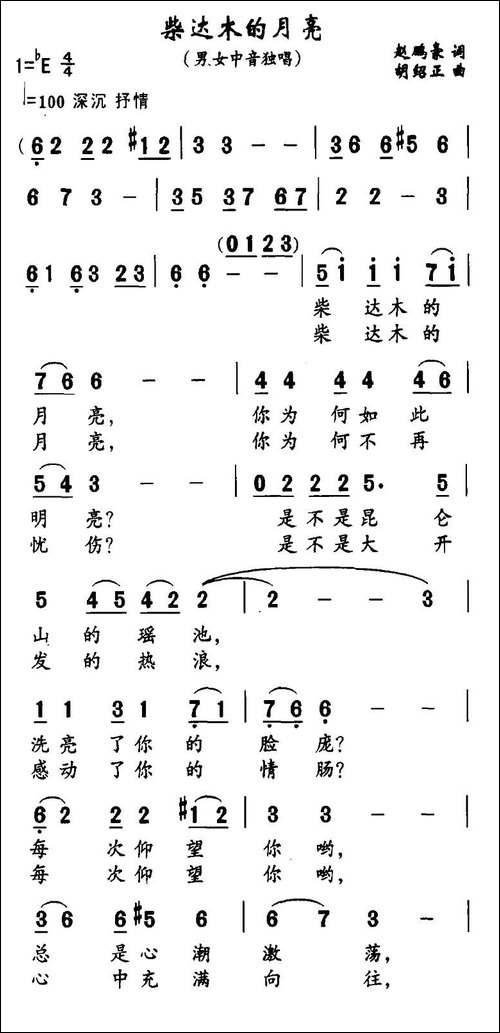 柴达木的月亮
(男、女中音独唱)
赵鹏豪 词
胡绍正 曲
1=♭E 4/4
♩=100 深沉 抒情
(6̣2 22 #12 | 3 3 - - | 36 6#5 6 |
6 7 3 - | 35 37 67 | 2 2 - 3 |
(0123)
6̣1 6̣3 23 | 6̣ 6̣ - - | 5i ii 7i |
柴 达木的
柴 达木的
76 6 - - | 44 44 46 |
月 亮, 你为 何如 此
月 亮, 你为 何不 再
54 3 - - | 02 225. 5 |
明 亮? 是不是昆 仑
忧 伤? 是不是大 开
5 45 42 2 | 2 - - 3 |
山 的 瑶 池,
发 的 热 浪,
11 31 7̣1 | 7̣6̣ 6̣ - - |
洗亮 了你 的 脸 庞?
感动 了你 的 情 肠?
6̣2 22 #12 | 3 3 - - |
每 次仰 望 你 哟,
每 次仰 望 你 哟,
36 6#5 6 | 6 7 3 - |
总 是心 潮 激 荡,
心 中充 满 向 往,